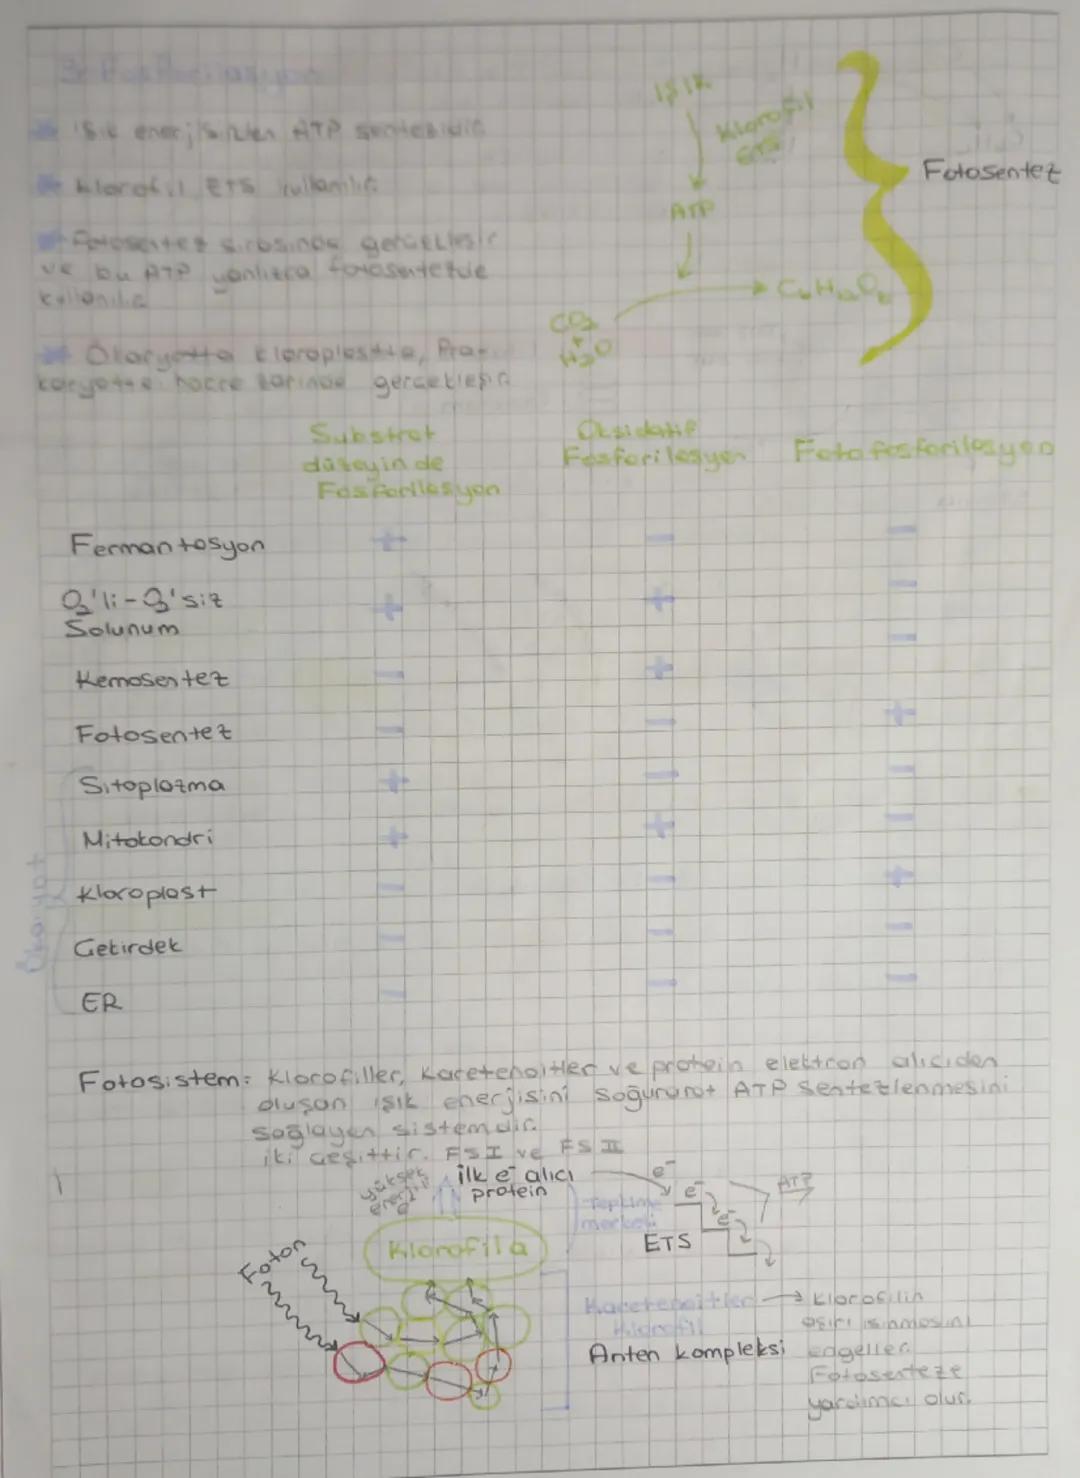 3- Fosforilasyon
* Işık enerjisinden ATP sentezidir
* Klorofil ETS kullanılır
* Fotosentez sırasında gerçekleşir
ve bu ATP yanlızca fotosentezde
kullanılır
* Ökaryotta kloroplastta, Pro-
karyotta hücre zarında gerçekleşir
IŞIK
Klorofil
ETS
ATP
CO2
+
H2O
C6H12O6
Fotosentez
Substrat
düzeyinde
Fosforilasyon
Oksidatif
Fosforilasyon
Fotofosforilasyon
Fermantasyon + - -
O2'li-O2'siz
Solunum + + -
Kemosentez - + -
Fotosentez - - +
Sitoplazma + - -
Mitokondri + + -
Kloroplast - - +
Çekirdek - - -
ER - - -
Ökaryot
Fotosistem: Klorofiller, Karetenoitler ve protein elektron alıcıden
oluşan ışık enerjisini soğurarat ATP Sentezlenmesini
sağlayan sistemdir.
iki çeşittir. FSI ve FS II
yüksek
enerjili
e-
ilk e- alıcı
protein
e-
e-
e-
ATP
merkezi
ETS
Klorofil a
Foton
Karetenoitler → klorofilin
Klorofil
aşırı ısınmasını
Anten kompleksi
engeller.
Fotosenteze
yardımcı olur.